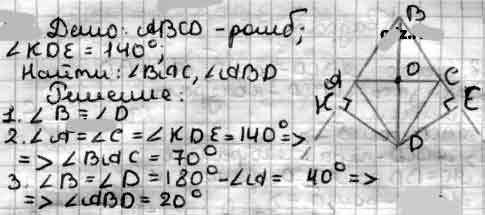 Дано: ABCD - ромб;
∠KDE = 140°;
Найти: ∠BAC, ∠ABD
Решение:
1. ∠B = ∠D
2. ∠A = ∠C = ∠KDE = 140° =>
=> ∠BAC = 70°
3. ∠B = ∠D = 180° - ∠A = 40° =>
=> ∠ABD = 20°
B
A O C
K E
D